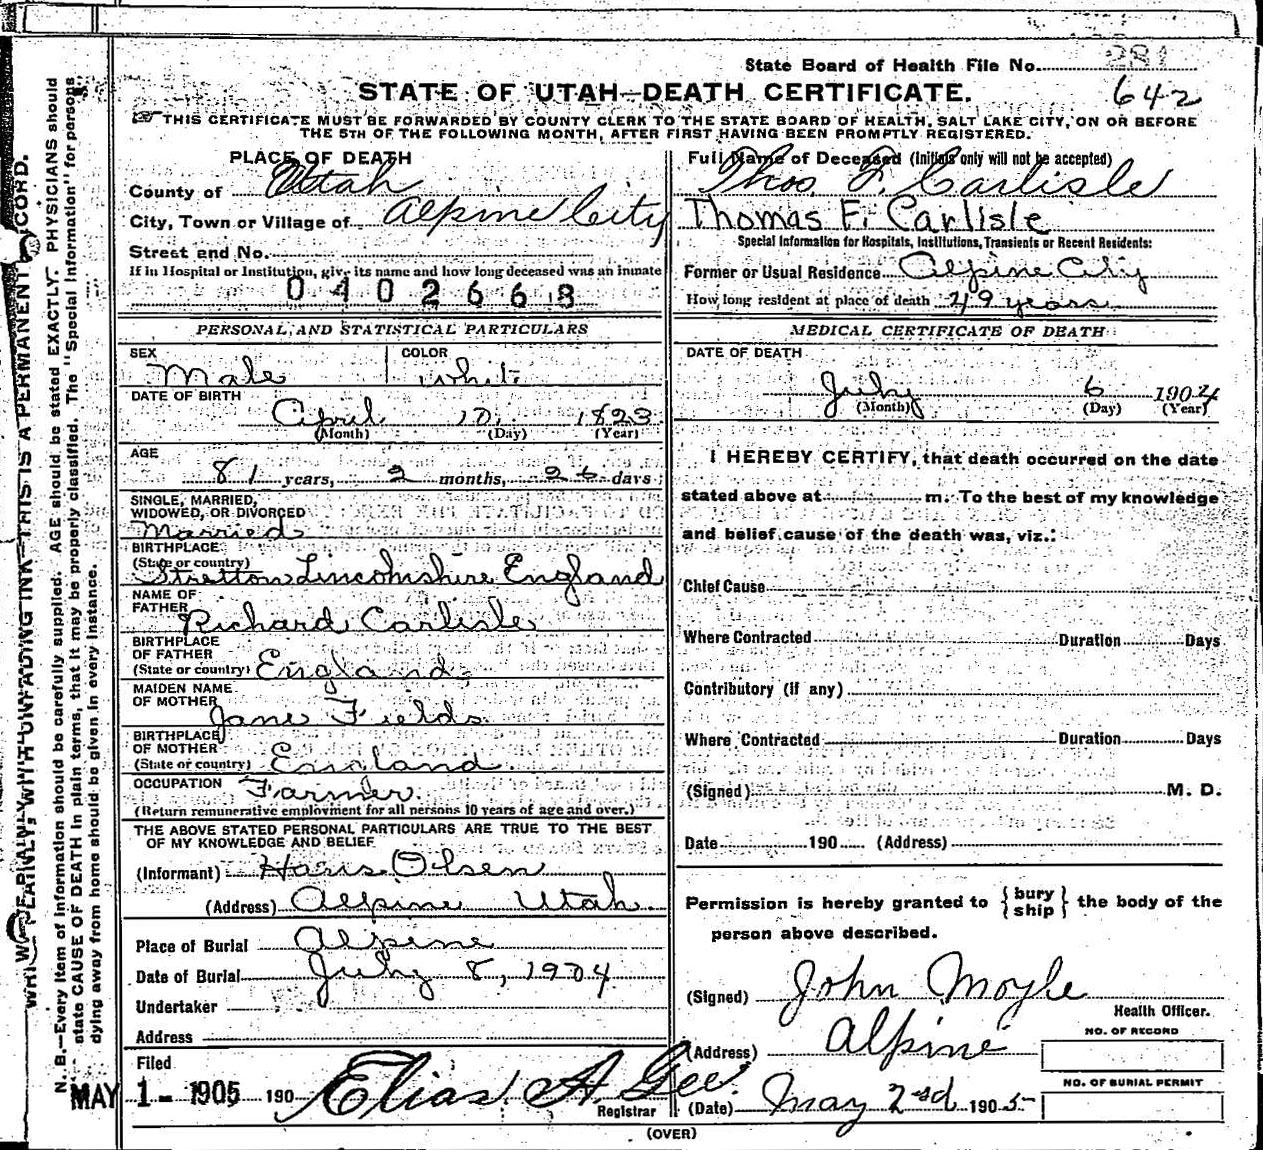 State Board of Health File No. 281
642
STATE OF UTAH—DEATH CERTIFICATE.
☞ THIS CERTIFICATE MUST BE FORWARDED BY COUNTY CLERK TO THE STATE BOARD OF HEALTH, SALT LAKE CITY, ON OR BEFORE
THE 5TH OF THE FOLLOWING MONTH, AFTER FIRST HAVING BEEN PROMPTLY REGISTERED.
PLACE OF DEATH
County of Utah
City, Town or Village of Alpine City
Street and No.
If in Hospital or Institution, give its name and how long deceased was an inmate
0402668
Full Name of Deceased (Initials only will not be accepted)
Thos. F. Carlisle
Thomas F. Carlisle
Special Information for Hospitals, Institutions, Transients or Recent Residents:
Former or Usual Residence Alpine City
How long resident at place of death 49 years
PERSONAL AND STATISTICAL PARTICULARS
SEX COLOR
Male White
DATE OF BIRTH
April 10, 1823
(Month) (Day) (Year)
AGE
81 years, 2 months, 26 days
SINGLE, MARRIED,
WIDOWED, OR DIVORCED
Married
BIRTHPLACE
(State or country)
Stretton Lincolnshire England
NAME OF
FATHER
Richard Carlisle
BIRTHPLACE
OF FATHER
(State or country) England
MAIDEN NAME
OF MOTHER
Jane Fields
BIRTHPLACE
OF MOTHER
(State or country) England
OCCUPATION Farmer
(Return remunerative employment for all persons 10 years of age and over.)
THE ABOVE STATED PERSONAL PARTICULARS ARE TRUE TO THE BEST
OF MY KNOWLEDGE AND BELIEF
(Informant) Hans Olsen
(Address) Alpine Utah
Place of Burial Alpine
Date of Burial July 8, 1904
Undertaker
Address
Filed
MAY 1 - 1905 190 Elias A. Gee.
Registrar
MEDICAL CERTIFICATE OF DEATH
DATE OF DEATH
July 6 1904
(Month) (Day) (Year)
I HEREBY CERTIFY, that death occurred on the date
stated above at m. To the best of my knowledge
and belief cause of the death was, viz.:
Chief Cause
Where Contracted Duration Days
Contributory (if any)
Where Contracted Duration Days
(Signed) M. D.
Date 190 (Address)
Permission is hereby granted to {bury
ship} the body of the
person above described.
(Signed) John Moyle
Health Officer.
(Address) Alpine
NO. OF RECORD
NO. OF BURIAL PERMIT
(Date) May 2nd 1905
(OVER)
WRITE PLAINLY, WITH UNFADING INK—THIS IS A PERMANENT RECORD.
N. B.—Every item of information should be carefully supplied. AGE should be stated EXACTLY. PHYSICIANS should
state CAUSE OF DEATH in plain terms, that it may be properly classified. The "Special Information" for persons
dying away from home should be given in every instance.